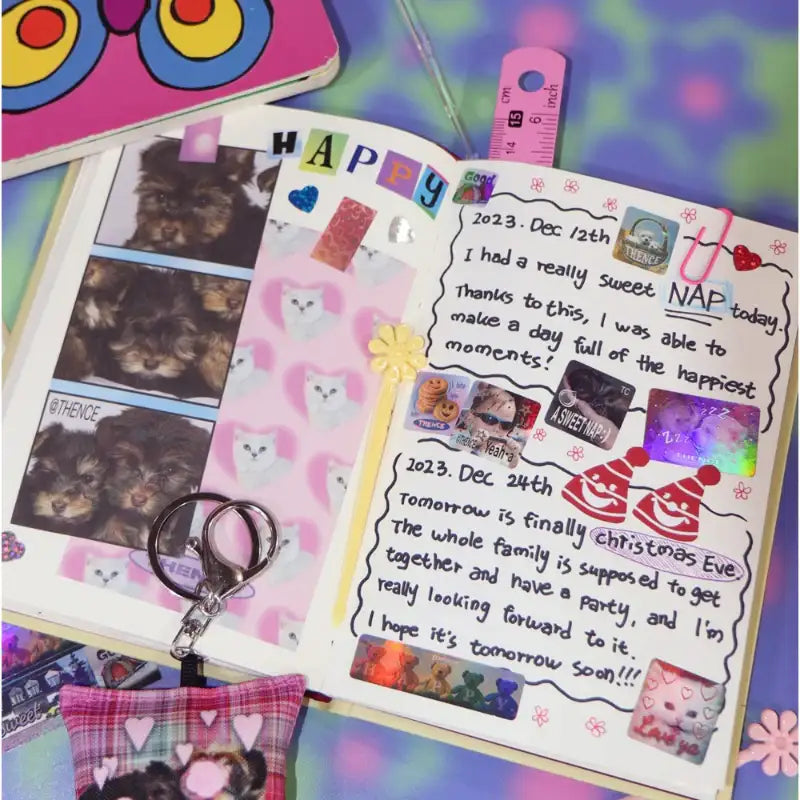 HAPPY
@THENCE
THENCE
cm
inch
15
14
6
Good
2023. Dec 12th
THENCE
I had a really sweet NAP today.
Thanks to this, I was able to
make a day full of the happiest
moments!
THENCE
Yeah~a
TC
A SWEET NAP :)
zzz
zzz
THENCE
2023. Dec 24th
Tomorrow is finally christmas Eve.
The whole family is supposed to get
together and have a party, and I'm
really looking forward to it.
I hope it's tomorrow soon!!!
HAPPY
Love ya
Sweet